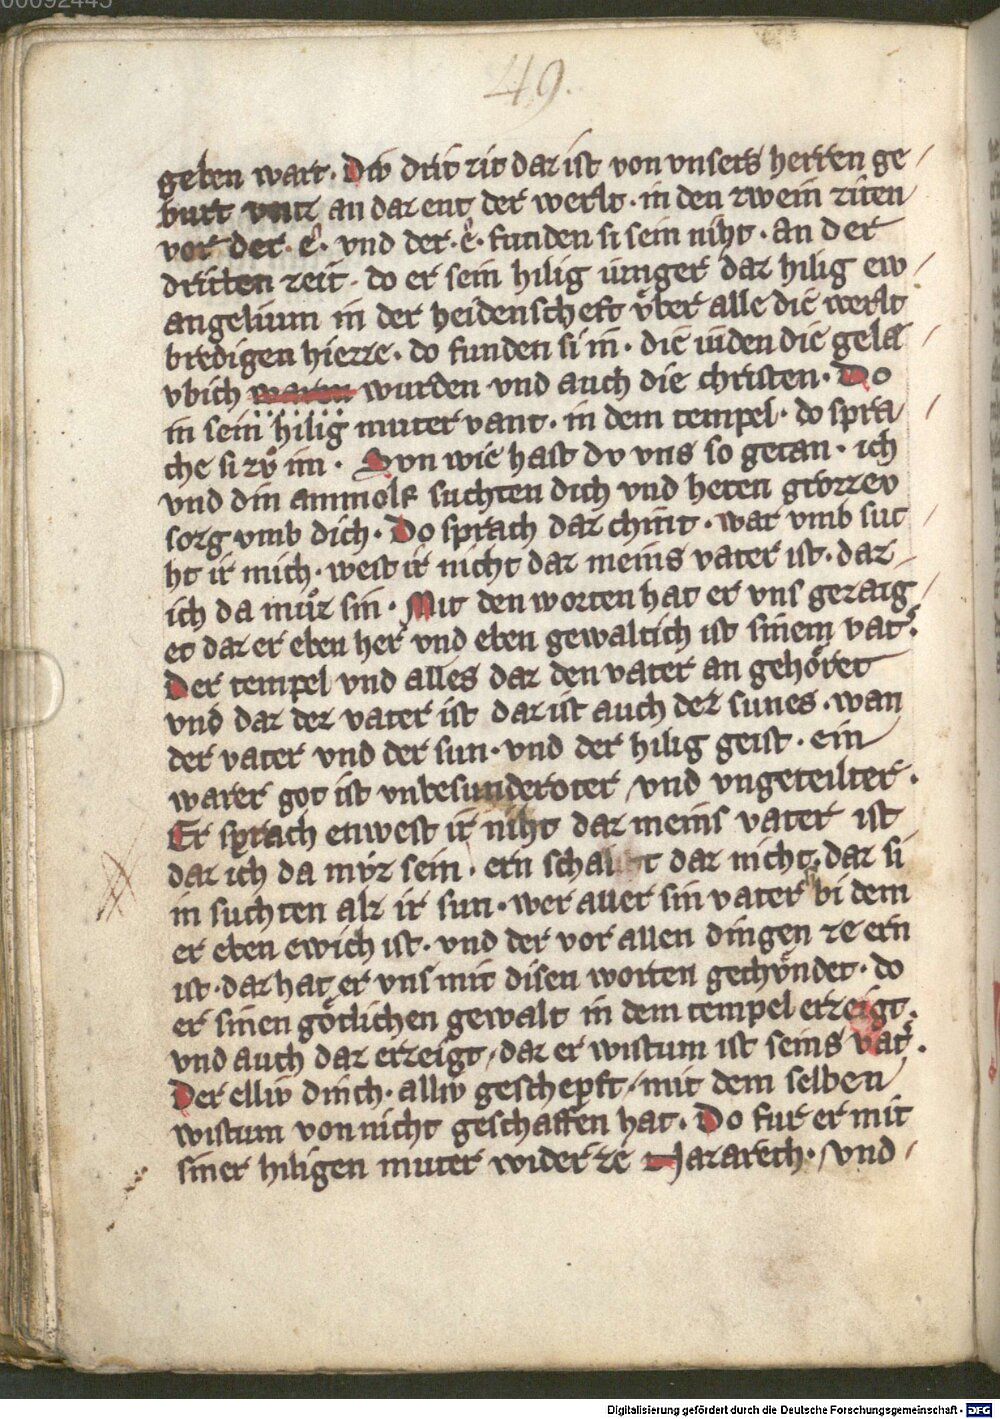 00092445
49.
geben wart. Div drit zit daz ist von vnsers herren ge/
burt vntz an daz ent der werlt. in den zwein ziten
vor der. e. vnd der. e. funden si sein niht. an der
dritten zeit. do er sein hilig iunger daz hilig ew/
angelium in der heidenscheft vͦber alle die werlt
bredigen hiezze. do funden si in. die iuden die gela/
vbich waren wurden vnd auch die christen. Do
in sein hilig muter vant. in dem tempel. do spra/
che si zvͦ im. Svn wie hast dv vns so getan. ich
vnd din ammolf suchten dich vnd heten grozzev
sorg vmb dich. Do sprach daz chint. war vmb suc/
ht ir mich. west ir nicht daz meins vater ist. daz/
ich da muͦz sin. Mit den worten hat er vns gezaig/
et daz er eben her vnd eben gewaltich ist sinem vat͛.
Der tempel vnd alles daz den vater an gehoͤret
vnd daz dez vater ist daz ist auch dez sunes. wan
der vater vnd der sun. vnd der hilig geist. ein
warer got ist vnbesunderoter / vnd vngeteilter.
Er sprach enwest ir niht daz meins vater ist
daz ich da mvͦz sein. ern schalt daz nicht. daz si
in suchten alz ir sun. wer auer sin vater bi dem
er eben ewich ist. vnd der vor allen dingen ze ern
ist. daz hat er vns mit disen worten gechvͦndet. do
er sinen goͤtlichen gewalt in dem tempel erzeigt.
vnd auch daz erzeigt / daz er wistum ist seins vat͛.
Der elliv dinch. alliv geschepft / mit dem selben
wistum von nicht geschaffen hat. Do fur er mit
siner hiligen muter wider ze Nazareth. / vnd /
Digitalisierung gefördert durch die Deutsche Forschungsgemeinschaft - DFG